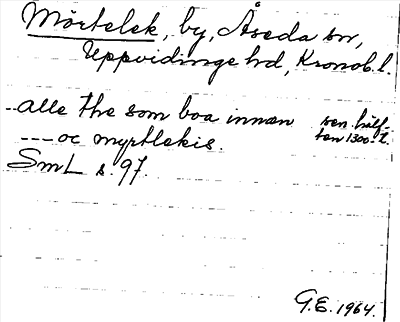 Mörtelek, by, Åseda sn,
Uppvidinge hd, Kronob. l.
alle the som boa innan sen. hälf-
--- oc myrtlekis. ten 1300-t.
SmL s. 97.
G.E. 1964.